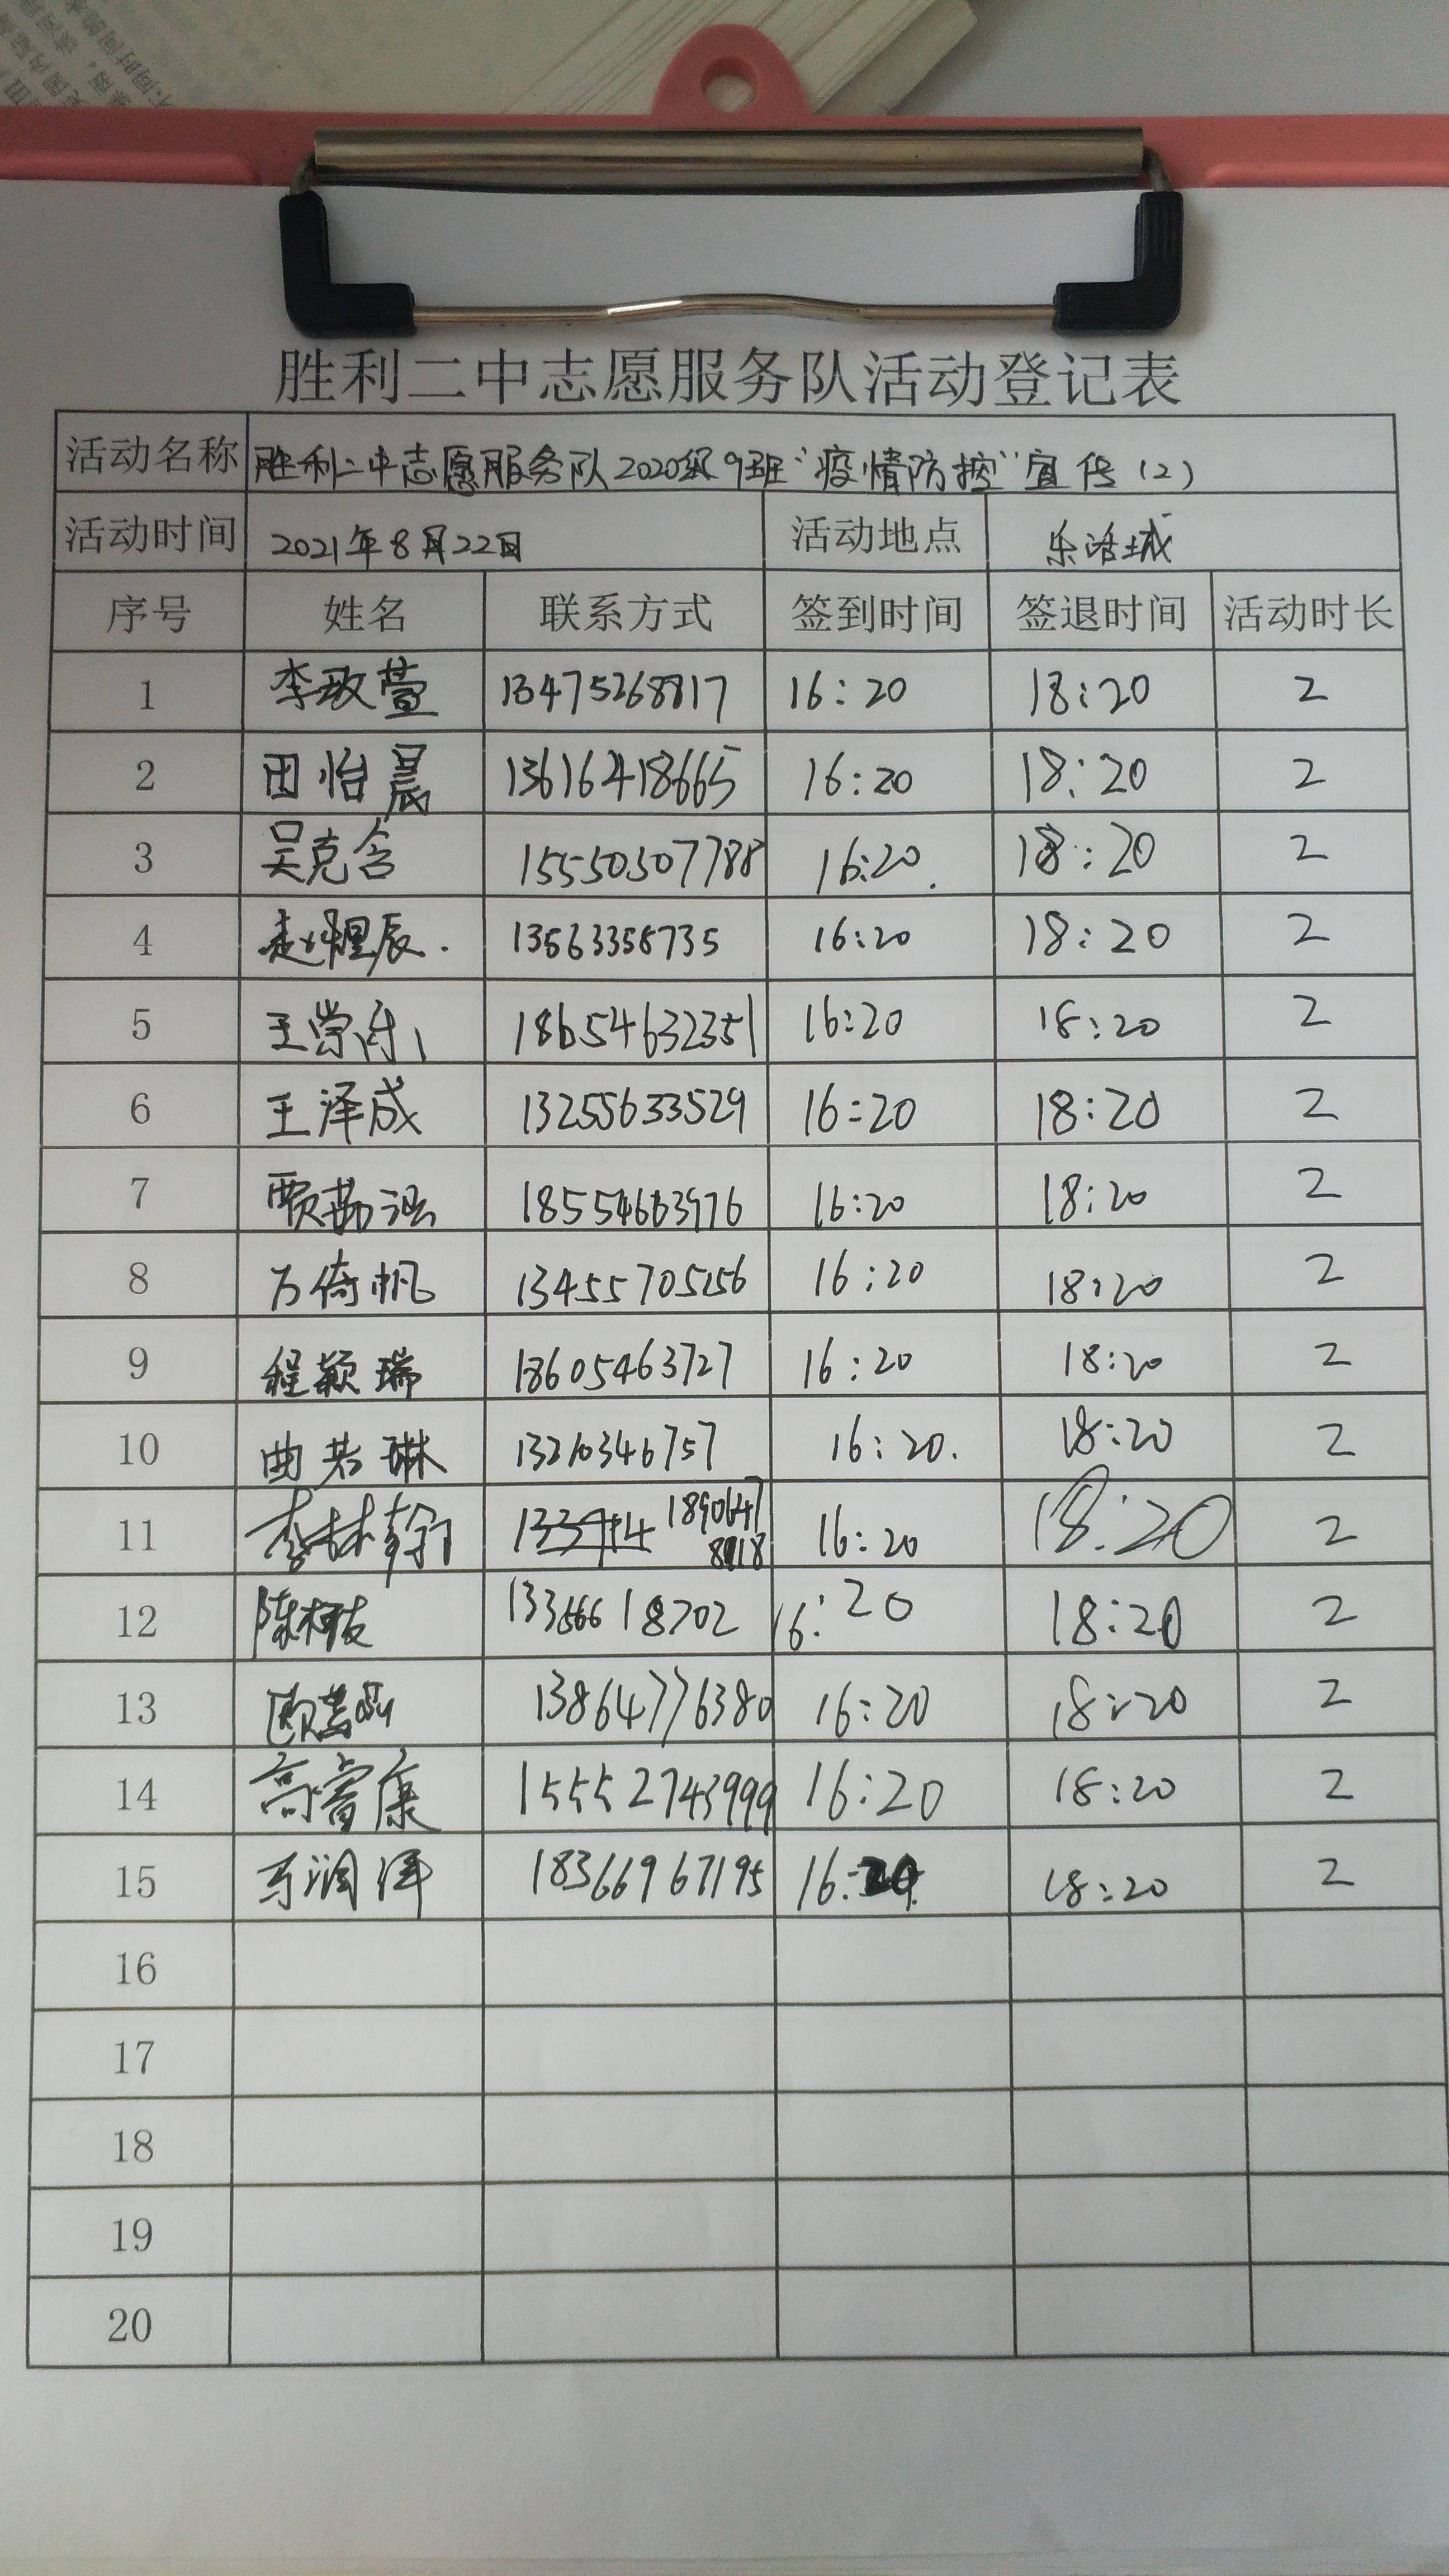 胜利二中志愿服务队活动登记表
活动名称 胜利二中志愿服务队2020级9班"疫情防控"宣传(2)
活动时间 2021年8月22日 活动地点 乐活城
序号 姓名 联系方式 签到时间 签退时间 活动时长
1 李政萱 13475268817 16:20 18:20 2
2 田怡晨 13616418665 16:20 18:20 2
3 吴克含 15550507788 16:20. 18:20 2
4 赵煜辰. 13563358735 16:20 18:20 2
5 王崇 18654632351 16:20 18:20 2
6 王泽成 13255633529 16:20 18:20 2
7 贾 18554663976 16:20 18:20 2
8 万倚帆 13455705256 16:20 18:20 2
9 程颖瑞 18605463727 16:20 18:20 2
10 曲若琳 13210346757 16:20. 18:20 2
11 李林 18906478918 16:20 18:20 2
12 陈柯友 13356618702 16:20 18:20 2
13 13864776380 16:20 18:20 2
14 高睿康 15552743999 16:20 18:20 2
15 万润泽 18366967195 16:20 18:20 2
16
17
18
19
20